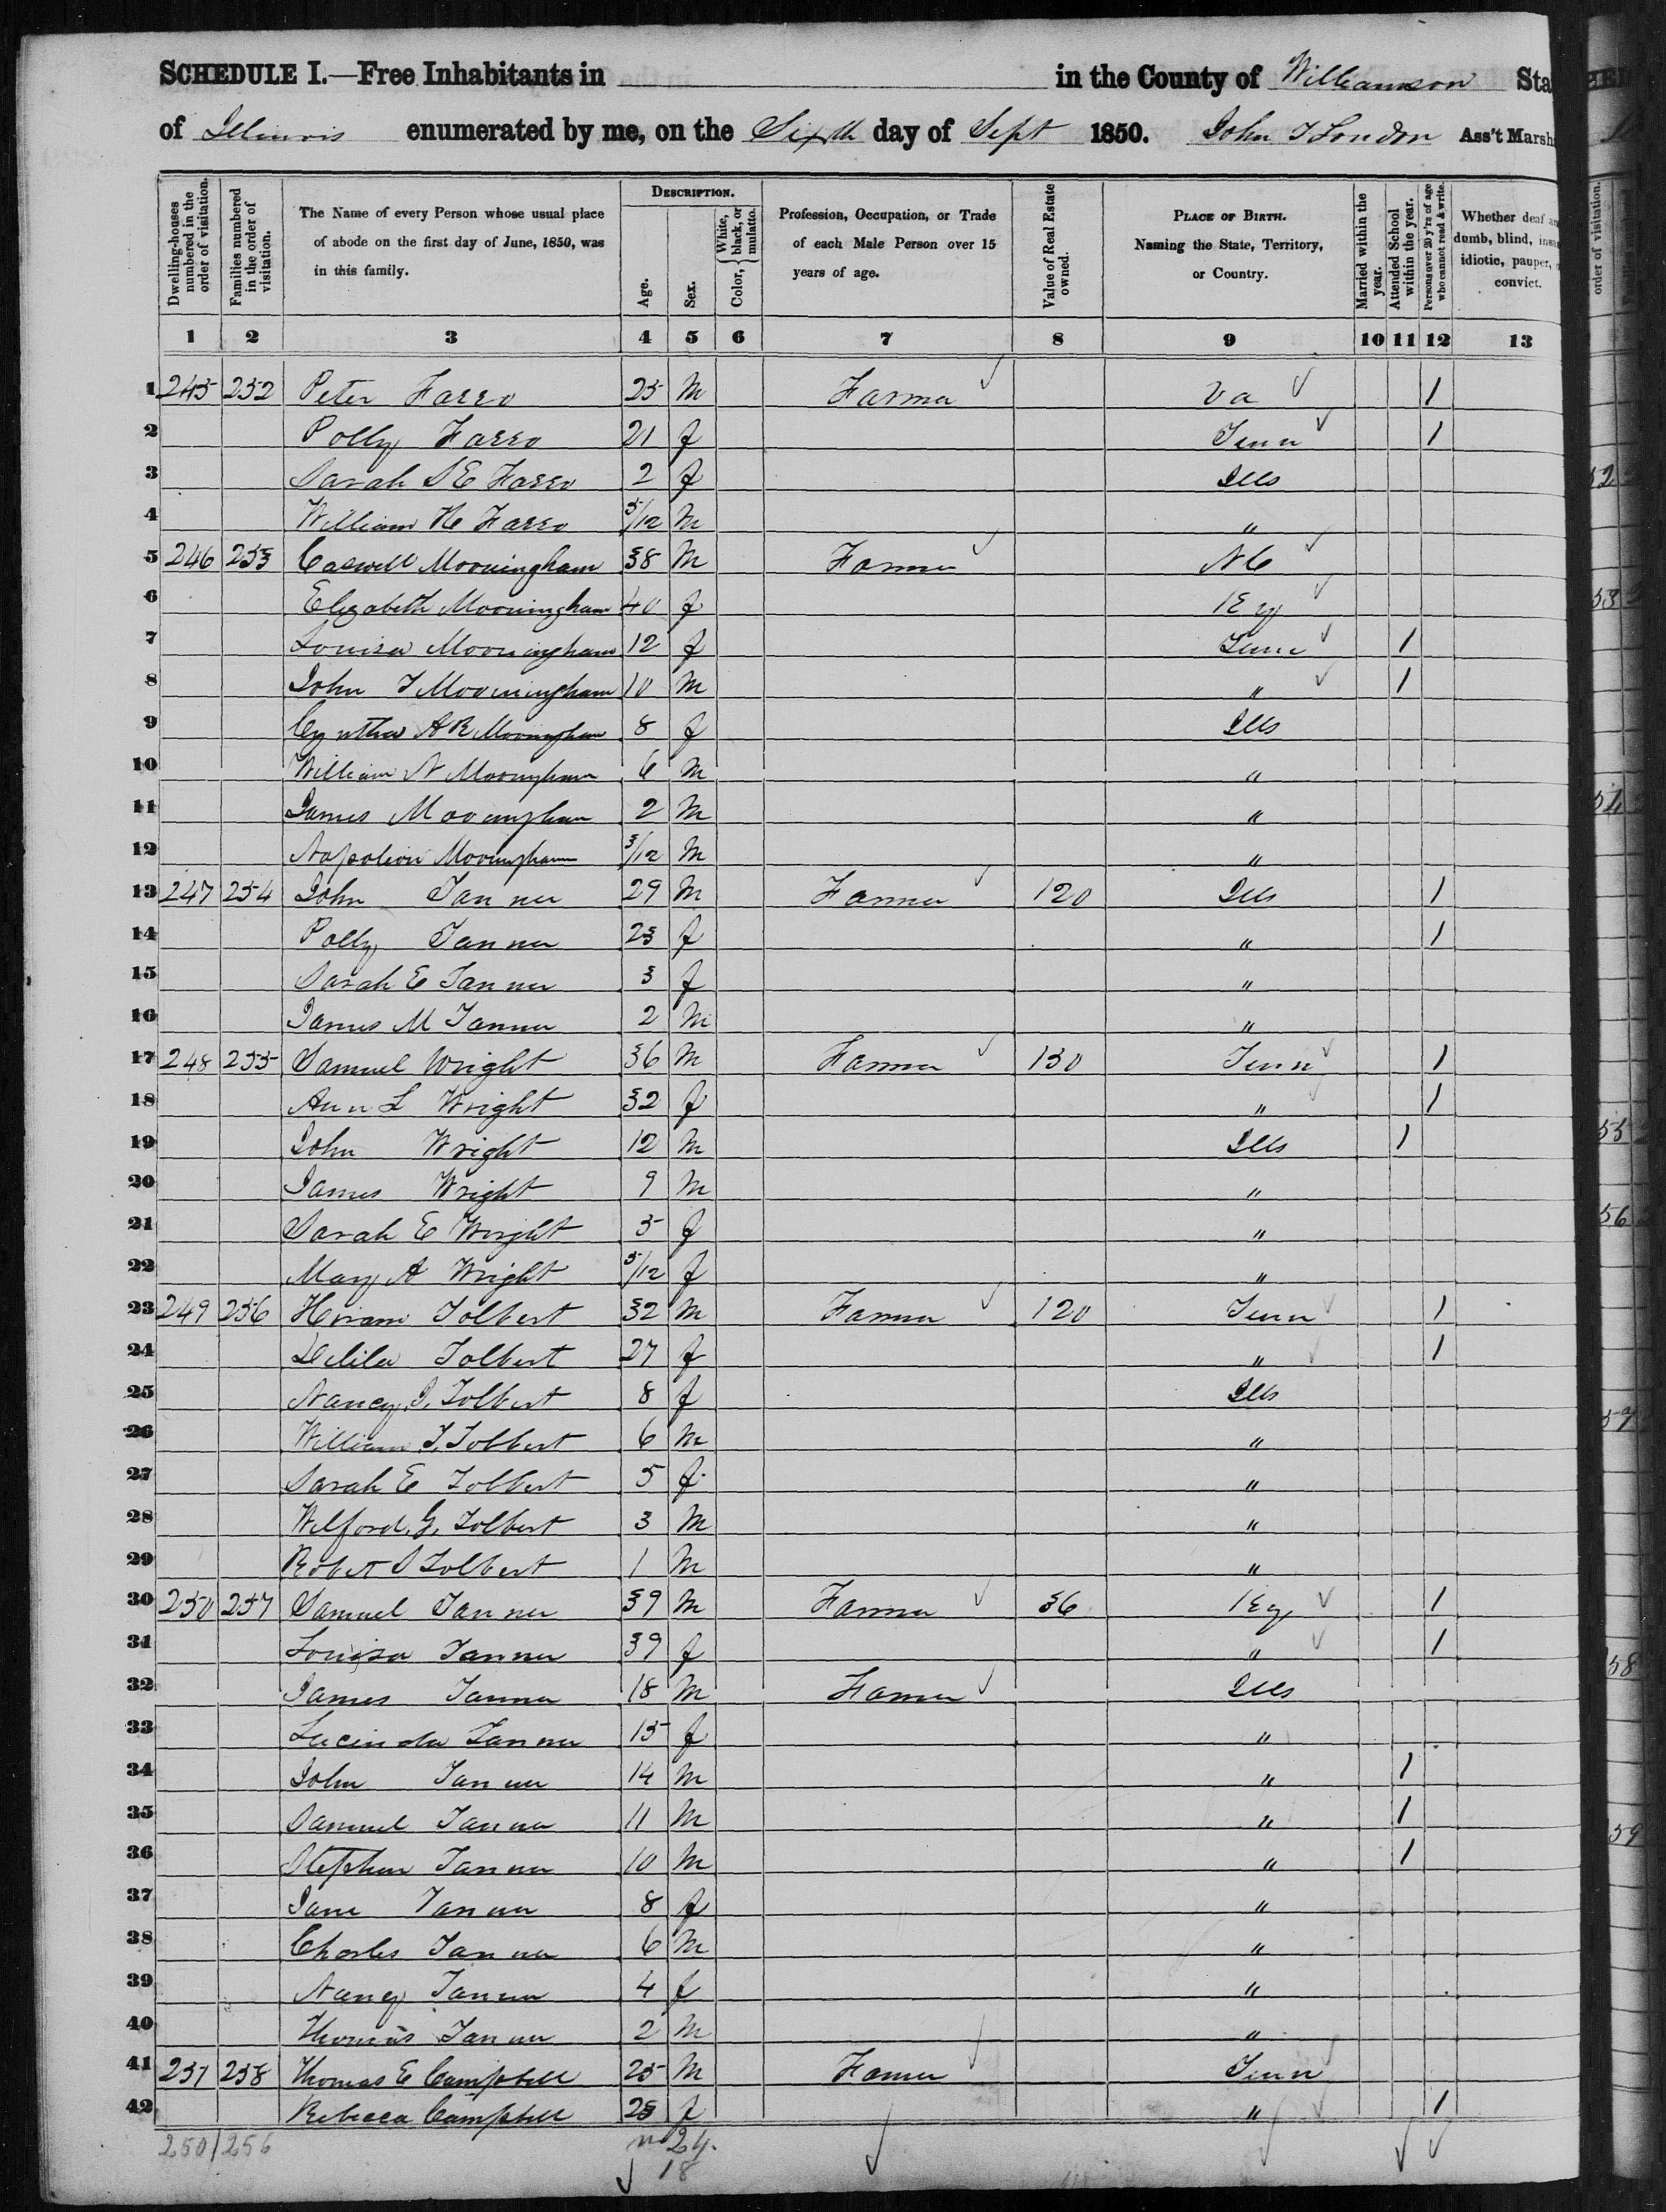 SCHEDULE I.—Free Inhabitants in in the County of Williamson Sta
of Illinois enumerated by me, on the Sixth day of Sept 1850. John T London Ass't Marsh
Dwelling-houses numbered in the order of visitation.
Families numbered in the order of visitation.
The Name of every Person whose usual place of abode on the first day of June, 1850, was in this family.
DESCRIPTION.
Age.
Sex.
Color, { White, black, or mulatto.
Profession, Occupation, or Trade of each Male Person over 15 years of age.
Value of Real Estate owned.
PLACE OF BIRTH. Naming the State, Territory, or Country.
Married within the year.
Attended School within the year.
Persons over 20 y'rs of age who cannot read & write.
Whether deaf and dumb, blind, insane, idiotic, pauper, convict.
1 2 3 4 5 6 7 8 9 10 11 12 13
1 245 252 Peter Farro 25 M Farmer Va 1
2 Polly Farro 21 f Tenn 1
3 Sarah S E Farro 2 f Ills
4 William H Farro 5/12 M "
5 246 253 Caswell Mooningham 38 M Farmer NC
6 Elizabeth Mooningham 40 f Ky
7 Louisa Mooningham 12 f Tenn 1
8 John T Mooningham 10 M " 1
9 Cynthia A R Mooningham 8 f Ills
10 William N Mooningham 6 M "
11 James Mooningham 2 M "
12 Napoleon Mooningham 3/12 M "
13 247 254 John Tanner 29 M Farmer 120 Ills 1
14 Polly Tanner 23 f " 1
15 Sarah E Tanner 3 f "
16 James M Tanner 2 M "
17 248 255 Samuel Wright 36 M Farmer 150 Tenn 1
18 Ann L Wright 32 f " 1
19 John Wright 12 M Ills 1
20 James Wright 9 M "
21 Sarah E Wright 5 f "
22 Mary A Wright 5/12 f "
23 249 256 Hiram Tolbert 32 M Farmer 120 Tenn 1
24 Delila Tolbert 27 f " 1
25 Nancy J. Tolbert 8 f Ills
26 William T. Tolbert 6 M "
27 Sarah E Tolbert 5 f "
28 Wilford, G. Tolbert 3 M "
29 Robert S Tolbert 1 M "
30 250 257 Samuel Tanner 39 M Farmer 36 Ky 1
31 Louisa Tanner 39 f " 1
32 James Tanner 18 M Farmer Ills
33 Lucinda Tanner 15 f "
34 John Tanner 14 M " 1
35 Samuel Tanner 11 M " 1
36 Stephen Tanner 10 M " 1
37 Jane Tanner 8 f "
38 Charles Tanner 6 M "
39 Nancy Tanner 4 f "
40 Thomas Tanner 2 M "
41 251 258 Thomas E Campbell 25 M Farmer Tenn
42 Rebecca Campbell 23 f " 1
250/256 m 24.
18